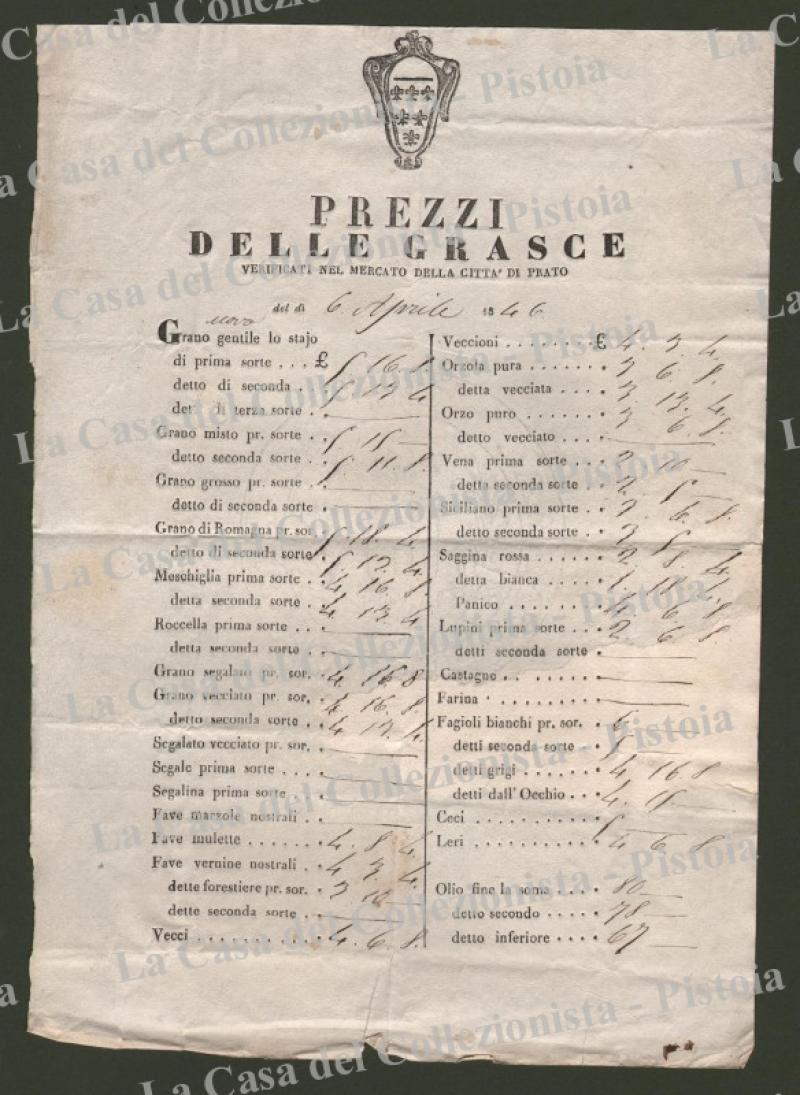 PREZZI
DELLE GRASCE
VERIFICATI NEL MERCATO DELLA CITTA' DI PRATO
del dì 6 Aprile 1846
Grano gentile lo stajo
di prima sorte . . . £ 5 16. 8.
detto di seconda . 5 13 4
dett. di terza sorte . ——
Grano misto pr. sorte . 5 15 —
detto seconda sorte . . 5. 11. 8.
Grano grosso pr. sorte . ——
detto di seconda sorte . ——
Grano di Romagna pr. sor. 5 18. 4.
detto di seconda sorte 5. 13. 4.
Meschiglia prima sorte . . 4 16. 8.
detta seconda sorte . . . 4. 13. 4
Roccella prima sorte . . . ——
detta seconda sorte . . . ——
Grano segalato pr. sor. . 4 16 8
Grano vecciato pr. sor. . 4 16. 8.
detto seconda sorte . . . 4 13 4.
Segalato vecciato pr. sor. . ——
Segale prima sorte . . . . ——
Segalina prima sorte . . . ——
Fave marzole nostrali . . ——
Fave mulette . . . . . . . 4. 8. 4.
Fave vernine nostrali . . 4 3. 4.
dette forestiere pr. sor. . 3 10 —
dette seconda sorte . . . ——
Vecci . . . . . . . . . . 4. 6. 8.
Veccioni . . . . . . . . £ 4 3. 4.
Orzola pura . . . . . . . 3 6. 8.
detta vecciata . . . . 3 13. 4
Orzo puro . . . . . . . . 3 6. 8.
detto vecciato . . . . ——
Vena prima sorte . . . . 2 10 —
detta seconda sorte . . . 2. 5 —
Siciliano prima sorte . . . 3 6. 8
detto seconda sorte . . . 3. 5
Saggina rossa . . . . . . 2 8. 4
detta bianca . . . .
Panico . . . . . . . . 6. 8
Lupini prima sorte . . . 2 6 8
detti seconda sorte . ——
Castagne . . . . . . . ——
Farina . . . . . . . . ——
Fagioli bianchi pr. sor. . 6 —
detti seconda sorte . . . 5 —
detti grigi . . . . . . . 4. 16. 8
detti dall'Occhio . . . 4. 15 —
Ceci . . . . . . . . . . 5 —
Leri . . . . . . . . . . 4 6. 8.
Olio fine la soma . . . . 80 —
detto secondo . . . . . 78 —
detto inferiore . . . . 67 —
La Casa del Collezionista - Pistoia